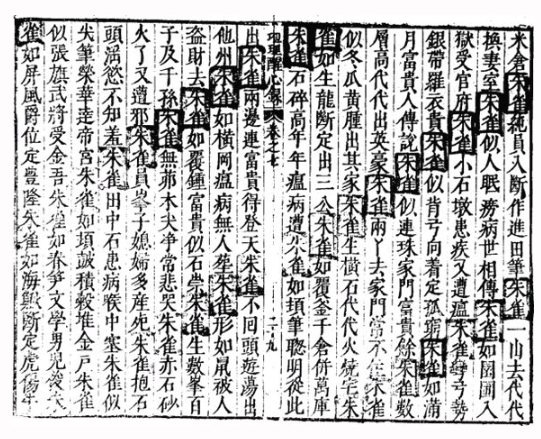 米倉朱雀純員入斷作進田筆朱雀一山去代代
換妻室朱雀似人眠滂病世相傳朱雀如園圃入
獄受官府朱雀小石墩患疾又遭瘟朱雀彎弓勢
銀帶羅衣貴朱雀似背弓向着定孤窮朱雀如滿
月富貴人傳說朱雀似連珠家門富貴餘朱雀數
層高代代出英豪朱雀兩丫去家門富不住朱雀
似冬瓜黃腫出其家朱雀生橫石代代火燒宅朱
雀如生龍斷定出三公朱雀如覆釜千倉併萬庫
朱雀石碎高年年瘟病遭朱雀如頓筆聰明從此
心錄 卷之七 二十九
出朱雀兩邊連富貴得登天朱雀不回頭遊蕩出
他州朱雀如橫岡瘟病無人葬朱雀形如鼠被人
盜財去朱雀如覆鍾富貴似石崇朱雀生數峯百
子及千孫朱雀無茆木尖爭常悲哭朱雀赤石砂
火了又遭邪朱雀員峯子媳婦多產死朱雀抱石
頭淫慾不知羞朱雀田中石患病喉中塞朱雀似
尖筆榮華達帝宮朱雀如頓積穀堆金戶朱雀
似張旗武將受金吾朱雀如春笋文學男兒朱
雀如屏風爵位定豐隆朱雀如海斷定虎傷